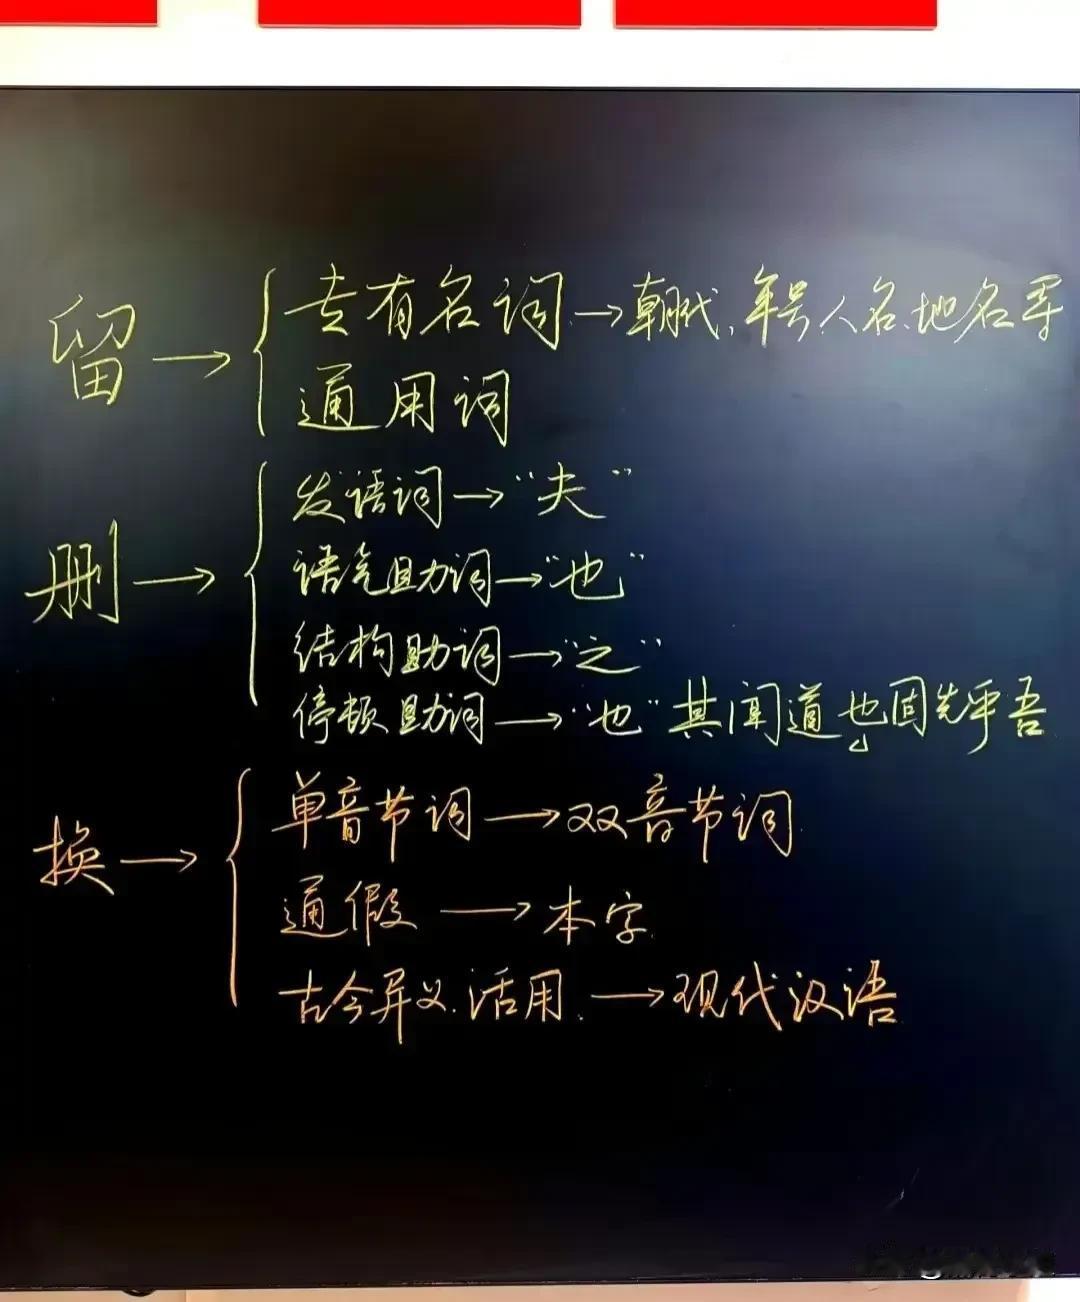 留→
专有名词→朝代、年号、人名、地名等
通用词
删→
发语词→“夫”
语气助词→“也”
结构助词→“之”
停顿助词→“也”其闻道也固先乎吾
换→
单音节词→双音节词
通假→本字
古今异义、活用→现代汉语